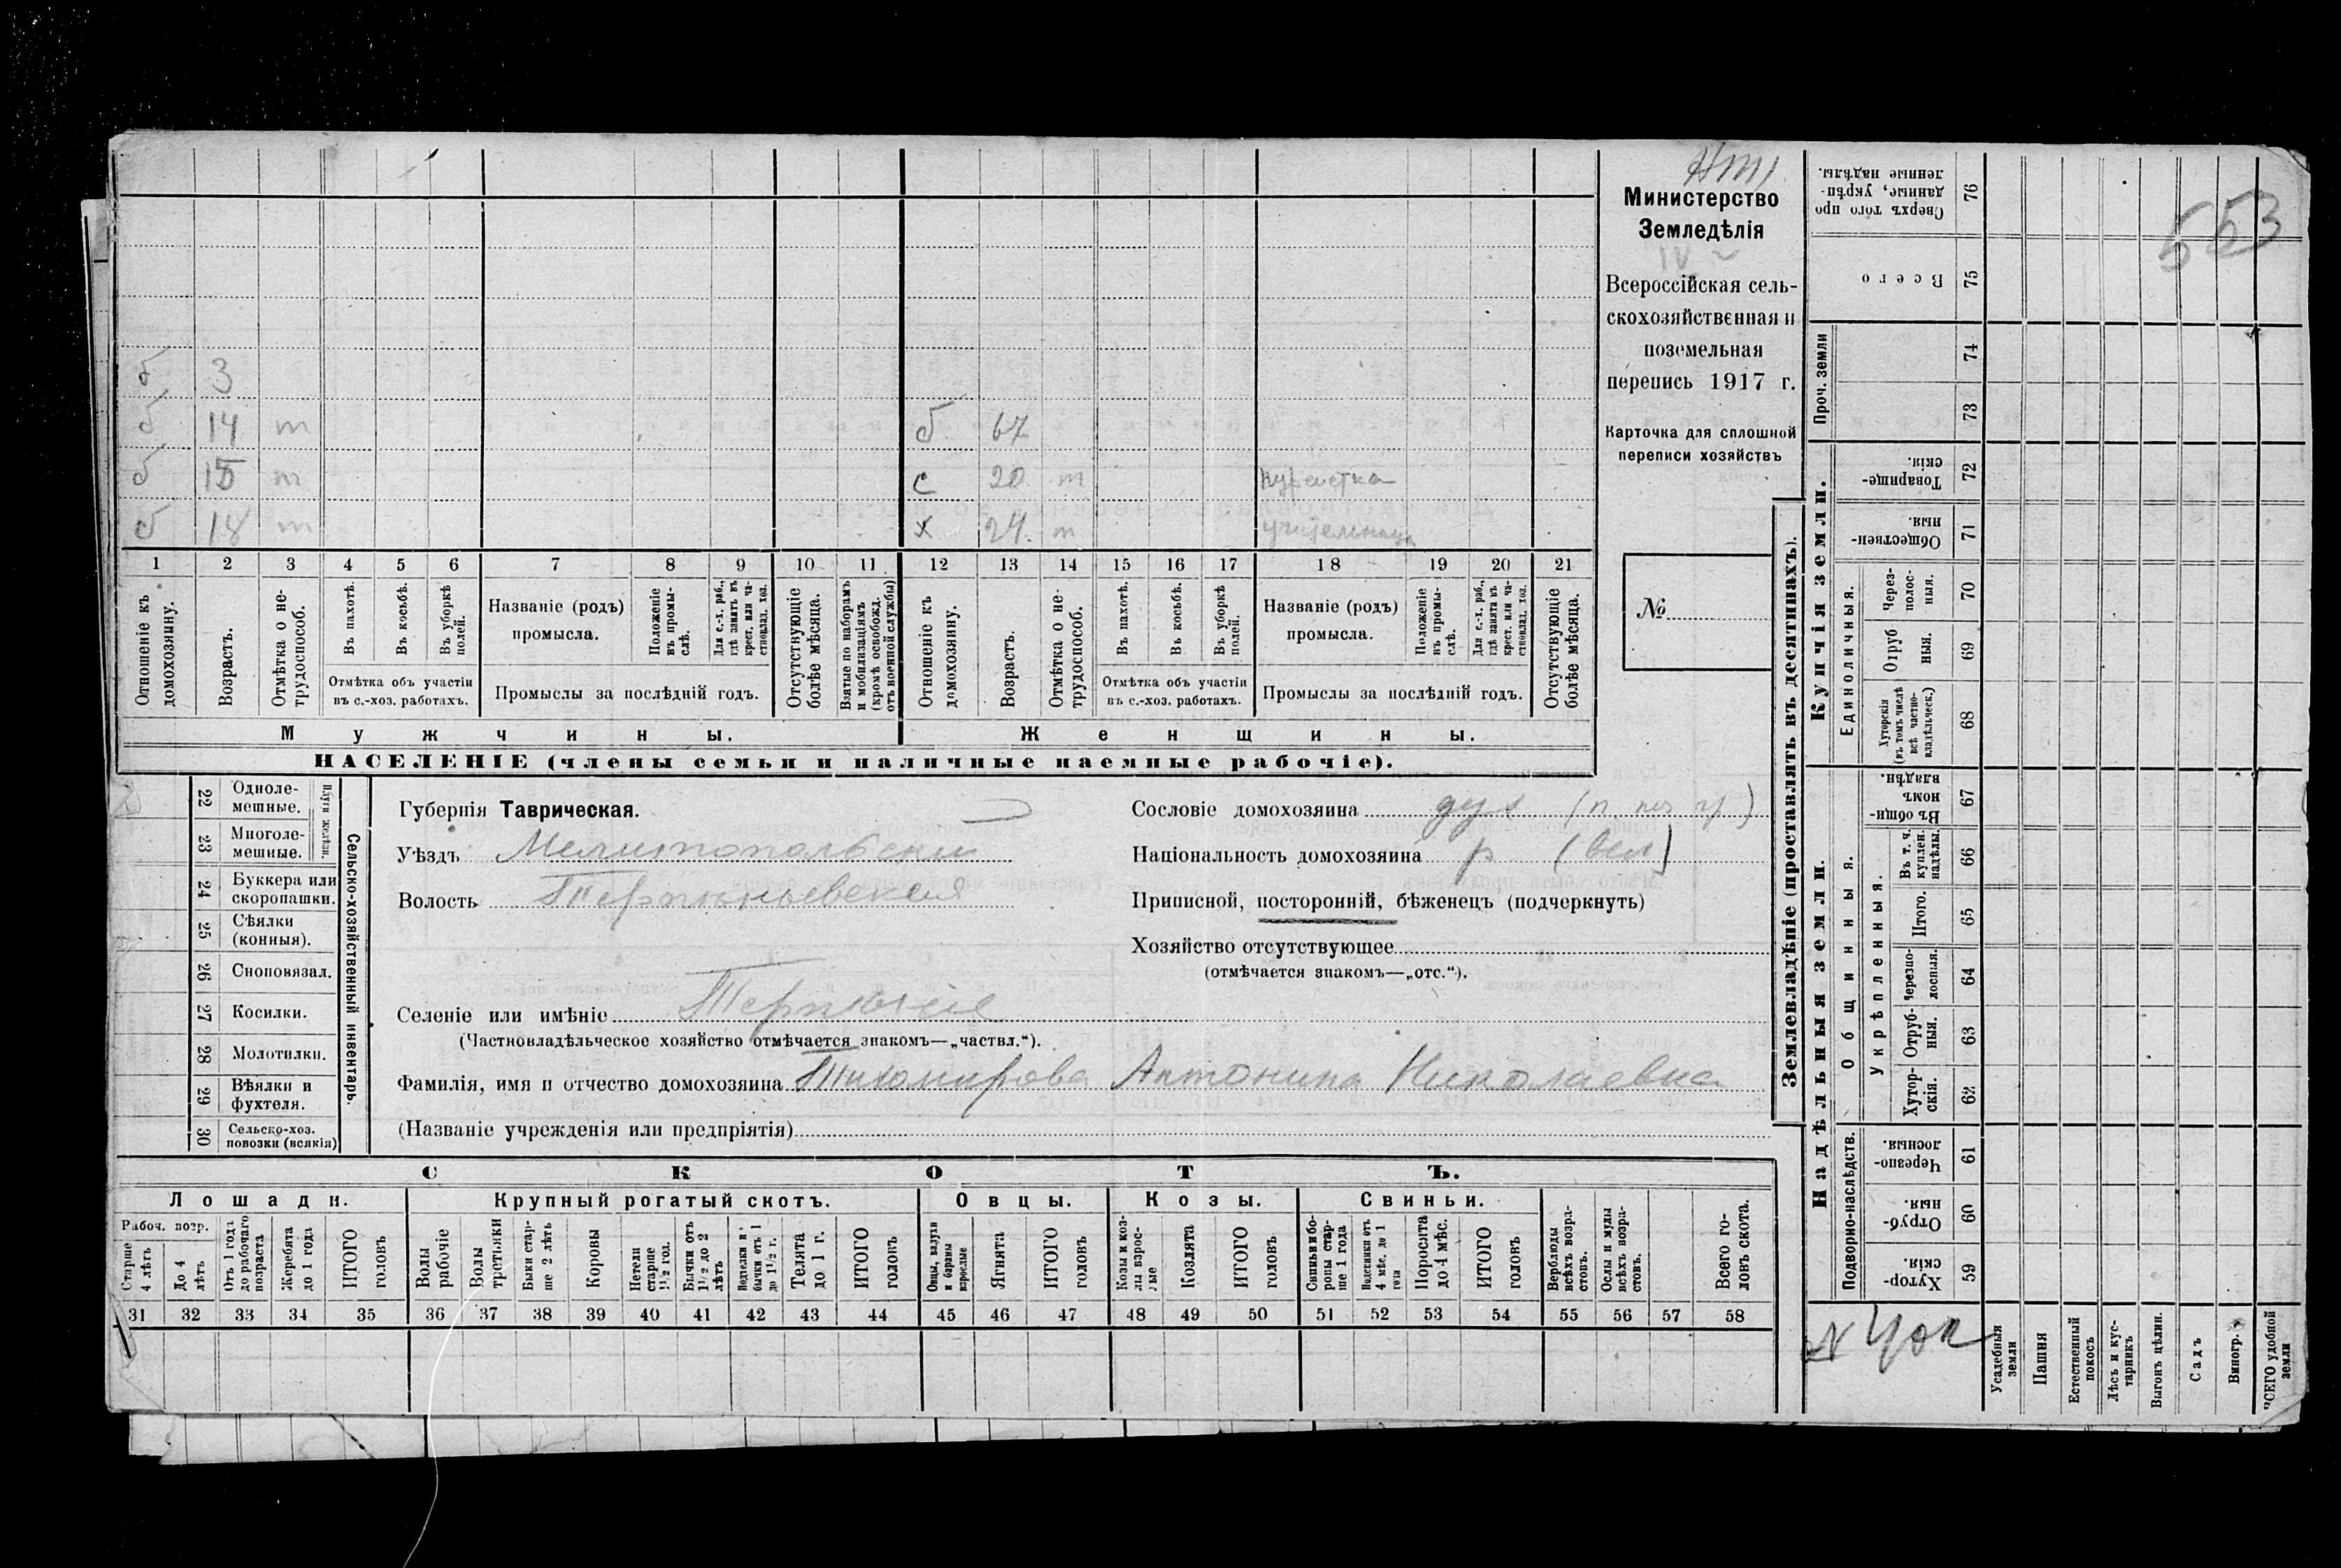 553
Министерство
Земледѣлія
Всероссійская сель-
скохозяйственная и
поземельная
перепись 1917 г.
Карточка для сплошной
переписи хозяйствъ
№
б 3
б 14 т
б 15 т
б 18 т
б 67
с 20 т курсистка
х 24 т учительница
1 2 3 4 5 6 7 8 9 10 11 12 13 14 15 16 17 18 19 20 21
Отношеніе къ домохозяину.
Возрастъ.
Отмѣтка о не-трудоспособ.
Въ пахотѣ.
Въ косьбѣ.
Въ уборкѣ полей.
Отмѣтка объ участіи
въ с.-хоз. работахъ.
Названіе (родъ)
промысла.
Положеніе въ промы-слѣ.
Для с.-х. раб., гдѣ занятъ въ крест. или ча-стновлад. хоз.
Промыслы за послѣдній годъ.
Отсутствующіе болѣе мѣсяца.
Взятые по наборамъ и мобилизаціямъ (кромѣ освобожд. отъ военной службы)
Отношеніе къ домохозяину.
Возрастъ.
Отмѣтка о не-трудоспособ.
Въ пахотѣ.
Въ косьбѣ.
Въ уборкѣ полей.
Отмѣтка объ участіи
въ с.-хоз. работахъ.
Названіе (родъ)
промысла.
Положеніе въ промы-слѣ.
Для с.-х. раб., гдѣ занята въ крест. или ча-стновлад. хоз.
Промыслы за послѣдній годъ.
Отсутствующіе болѣе мѣсяца.
Мужчины.
Женщины.
НАСЕЛЕНІЕ (члены семьи и наличные наемные рабочіе).
Сельско-хозяйственный инвентарь.
Плуги желѣзн.
22 Одноле-
мешные.
23 Многоле-
мешные.
24 Буккера или
скоропашки.
25 Сѣялки
(конныя).
26 Сноповязал.
27 Косилки.
28 Молотилки.
29 Вѣялки и
фухтеля.
30 Сельско-хоз.
повозки (всякія)
Губернія Таврическая.
Уѣздъ Мелитопольский
Волость Терпеньевская
Селеніе или имѣніе Терпѣніе
(Частновладѣльческое хозяйство отмѣчается знакомъ—„частвл.“).
Фамилія, имя и отчество домохозяина Тихомирова Антонина Николаевна
(Названіе учрежденія или предпріятія)
Сословіе домохозяина дух
Національность домохозяина р (вел)
Приписной, посторонній, бѣженецъ (подчеркнуть)
Хозяйство отсутствующее
(отмѣчается знакомъ—„отс.“).
СКОТЪ.
Лошади.
Крупный рогатый скотъ.
Овцы.
Козы.
Свиньи.
Рабоч. возр.
Старше 4 лѣтъ
До 4 лѣтъ
Отъ 1 года до рабочаго возраста
Жеребята до 1 года
ИТОГО головъ
Волы рабочіе
Волы третьяки
Быки стар-ше 2 лѣтъ
Коровы
Нетели старше 1½ год.
Бычки отъ 1½ до 2 лѣтъ
бычки отъ 1 до 1½ г.
Телята до 1 г.
ИТОГО головъ
Овцы, валухи и бараны взрослые
Ягнята
ИТОГО головъ
Козы и коз-лы взрос-лые
Козлята
ИТОГО головъ
Свиньи и бо-ровы стар-ше 1 года
Подсвинки отъ 4 мѣс. до 1 года
Поросята до 4 мѣс.
ИТОГО головъ
Верблюды всѣхъ возра-стовъ.
Ослы и мулы всѣхъ возра-стовъ.
Всего го-ловъ скота.
31 32 33 34 35 36 37 38 39 40 41 42 43 44 45 46 47 48 49 50 51 52 53 54 55 56 57 58
Землевладѣніе (проставлять въ десятинахъ).
Надѣльныя земли.
Купчія земли.
Проч. земли
Подворно-наслѣдств.
Общинныя.
Укрѣпленныя.
Единоличныя.
Хутор-скія. 59
Отруб-ныя. 60
Черезпо-лосныя. 61
Хутор-скія. 62
Отруб-ныя. 63
Черезпо-лосныя. 64
Итого. 65
Въ т. ч. куплен. надѣлы. 66
Въ общин-номъ владѣн. 67
Хуторскія (въ томъ числѣ всѣ частно-владѣльческ.) 68
Отруб ныя. 69
Через-полос-ныя. 70
Обществен-ныя. 71
Товарище-скія. 72
73
74
Всего 75
Сверхъ того про данные, укрѣп-ленные надѣлы. 76
Усадебныя земли
Пашня
Естественный покосъ
Лѣсъ и кус-тарникъ
Выгонъ цѣлин.
Садъ
Виногр.
ВСЕГО удобной земли